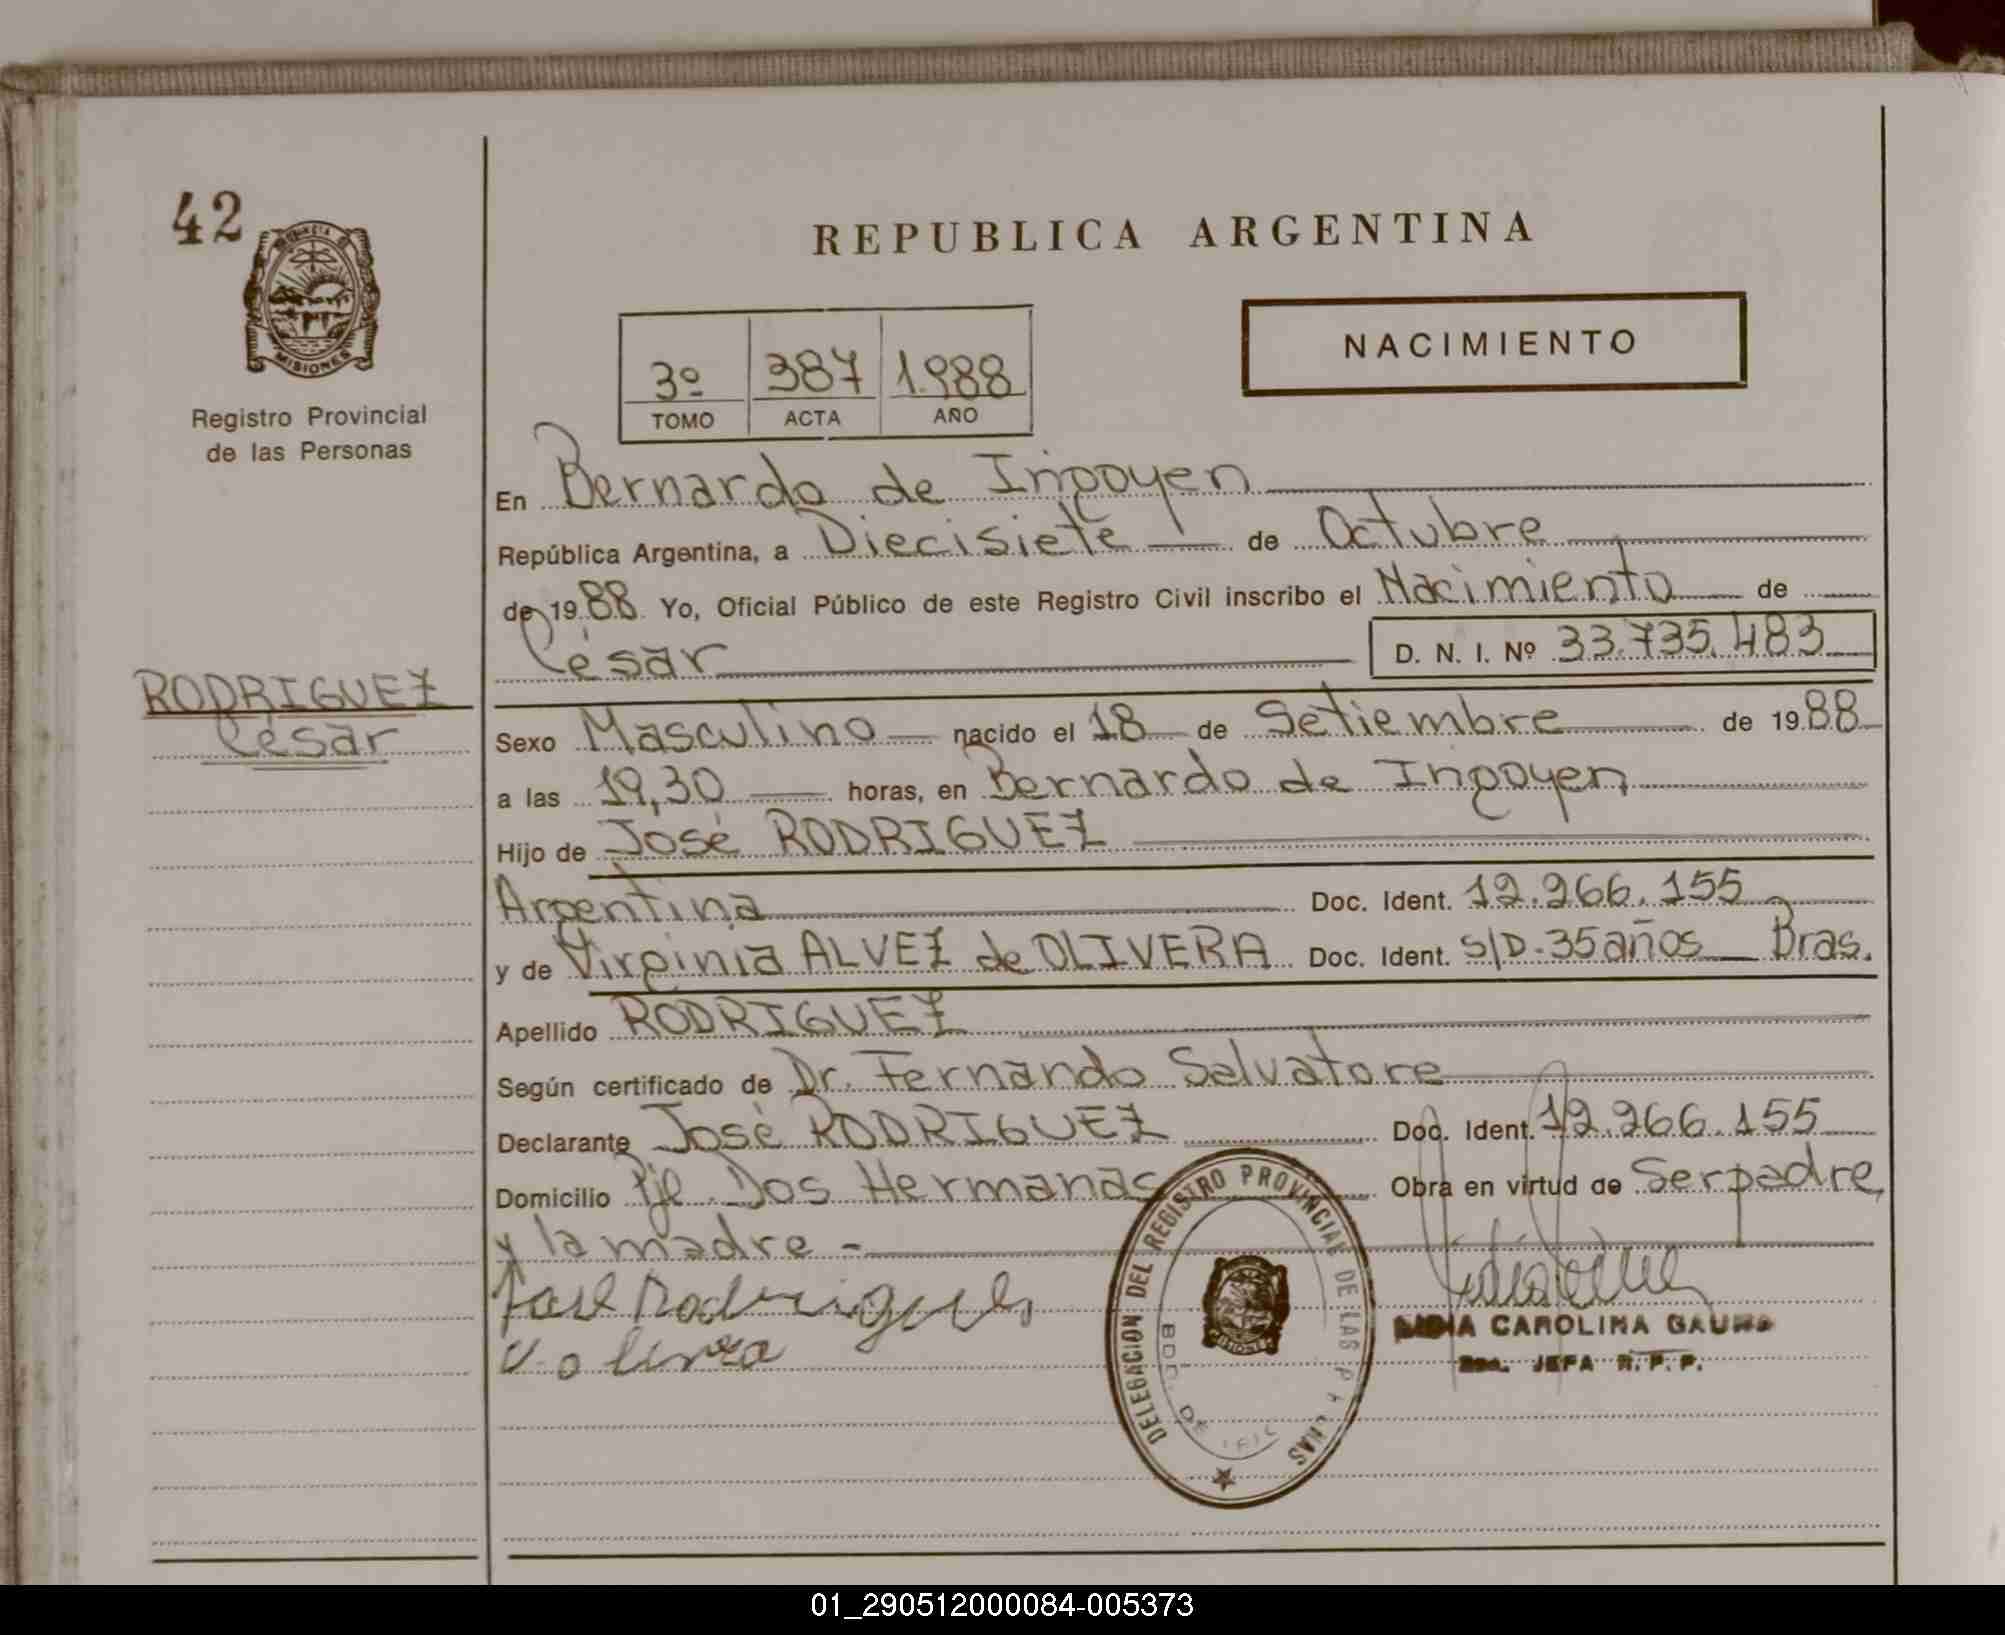 42
PROVINCIA DE
MISIONES
Registro Provincial
de las Personas
RODRIGUEZ
César
REPUBLICA ARGENTINA
NACIMIENTO
3º 387 1.988
TOMO ACTA AÑO
En Bernardo de Irigoyen
República Argentina, a Diecisiete de Octubre
de 1988 Yo, Oficial Público de este Registro Civil inscribo el Nacimiento de
César D. N. I. Nº 33.735.483
Sexo Masculino nacido el 18 de Setiembre de 1988
a las 19,30 horas, en Bernardo de Irigoyen
Hijo de José RODRIGUEZ
Argentina Doc. Ident. 12.266.155
y de Virginia ALVEZ de OLIVERA Doc. Ident. S/D-35 años Bras.
Apellido RODRIGUEZ
Según certificado de Dr. Fernando Salvatore
Declarante José RODRIGUEZ Doc. Ident. 12.266.155
Domicilio Pje. Dos Hermanas Obra en virtud de Ser padre
y la madre -
José Rodrigues
V. olivera
DELEGACION DEL REGISTRO PROVINCIAL DE LAS
BDO. DE
MISIONES
LIDIA CAROLINA GAUNA
JEFA R. P. P.
01_290512000084-005373